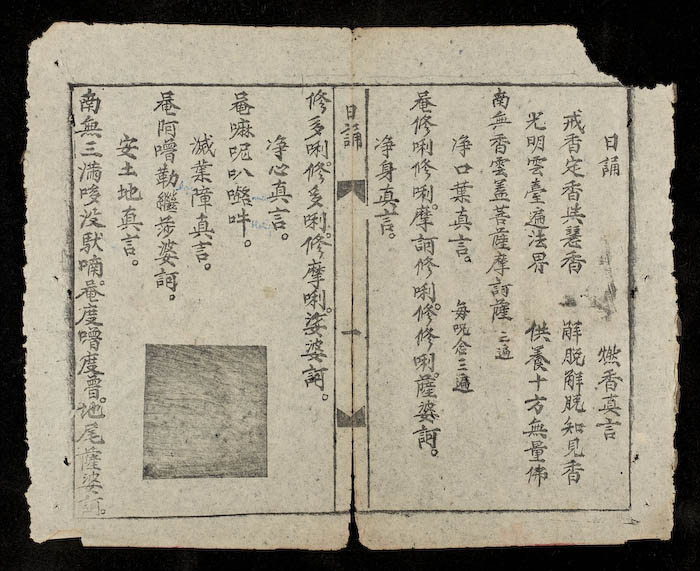 日誦 燃香真言
戒香定香共慧香 解脱解脱知見香
光明雲臺遍法界 供養十方無量佛
南無香雲盖菩薩摩訶薩 三遍
净口業真言。 每呪念三遍
唵修唎修唎。摩訶修唎。修修唎。薩婆訶。
净身真言。
日誦 一
修多唎。修多唎。修摩唎。娑婆訶。
净心真言。
唵嘛呢叭㘁吽。
滅業障真言。
唵阿噜勒繼莎婆訶。
安土地真言。
南無三满哆没馱喃。唵度噜度噜。地尾薩婆訶。